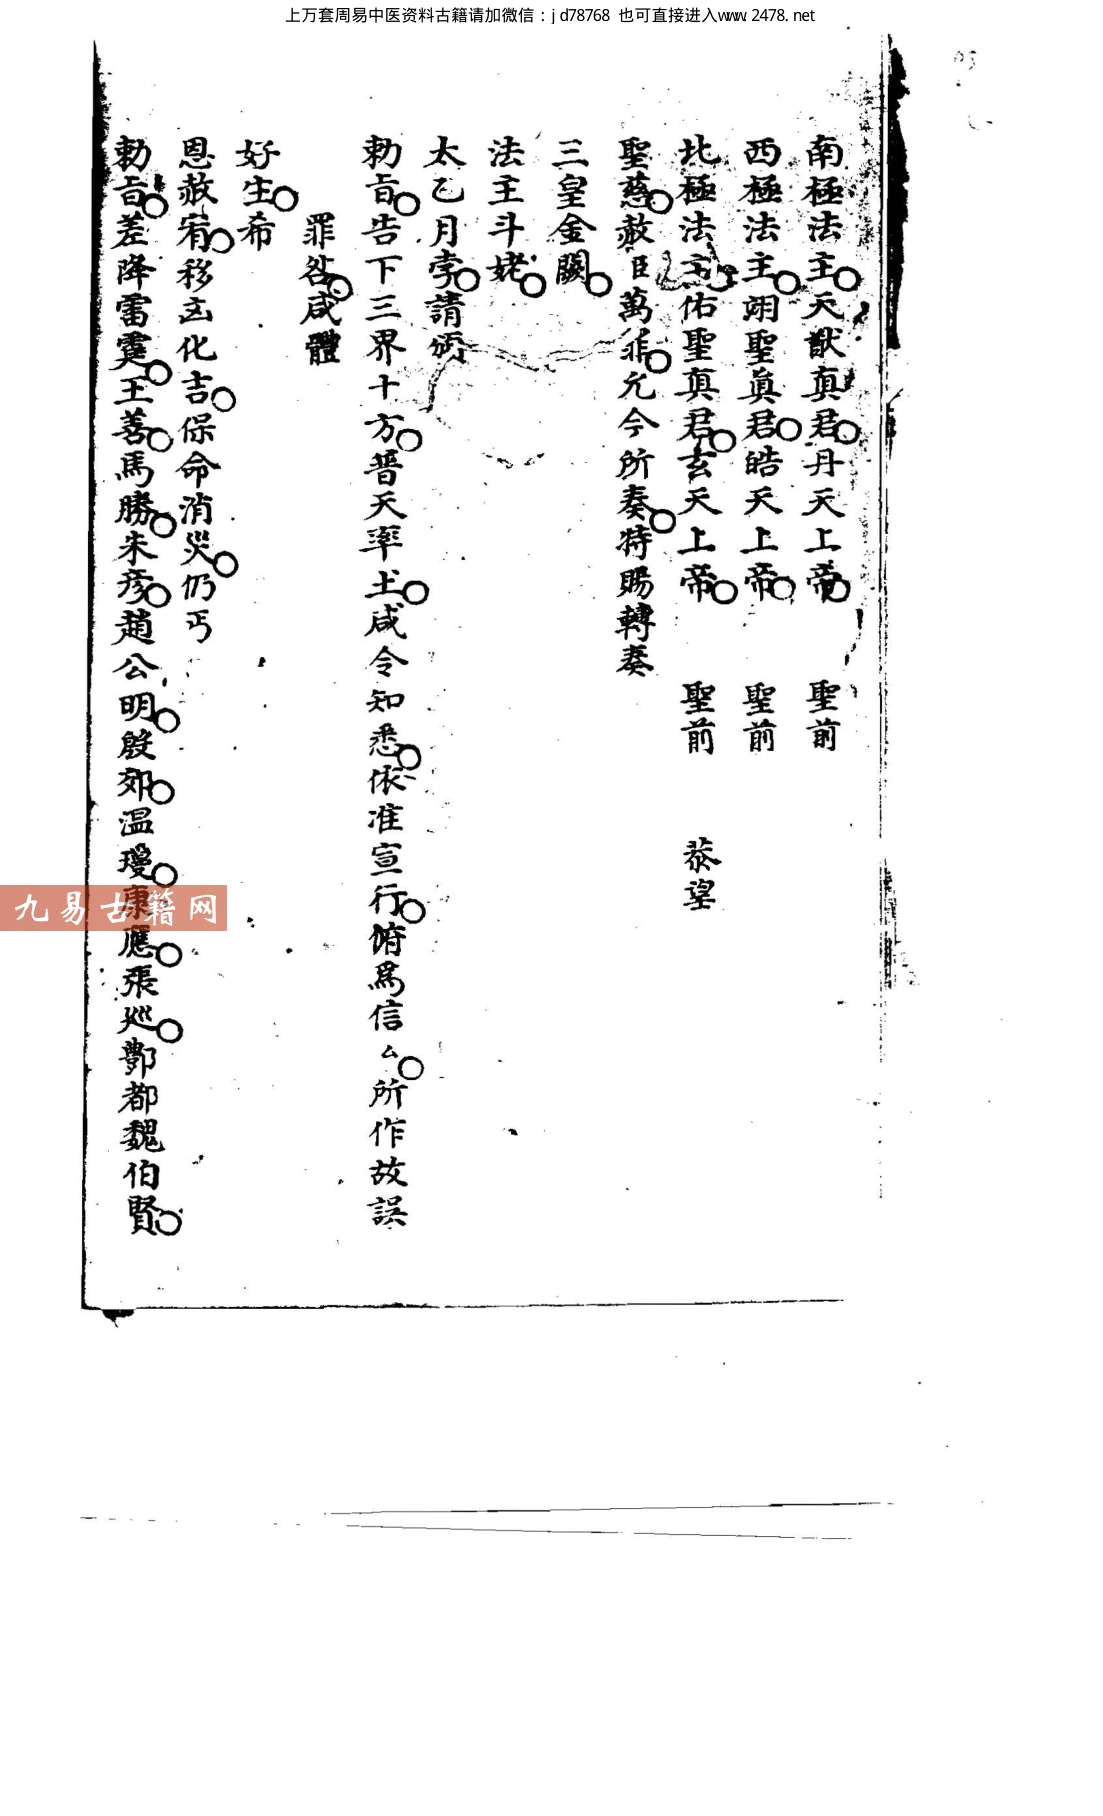 上万套周易中医资料古籍请加微信：jd78768 也可直接进入www.2478.net
南極法主天猷真君丹天上帝 聖前
西極法主翊聖真君皓天上帝 聖前
北極法主佑聖真君玄天上帝 聖前 恭望
聖慈赦臣萬罪允今所奏特賜轉奏
三皇金闕
法主斗姥
太乙月孛請頒
勅旨告下三界十方普天率土咸令知悉依准宣行俯為信厶所作故誤
罪咎咸體
好生希
恩赦宥移凶化吉保命消災仍丐
勅旨差降雷霆王善馬勝朱彦趙公明殷郊温瓊康應張巡酆都魏伯賢
九易古籍网